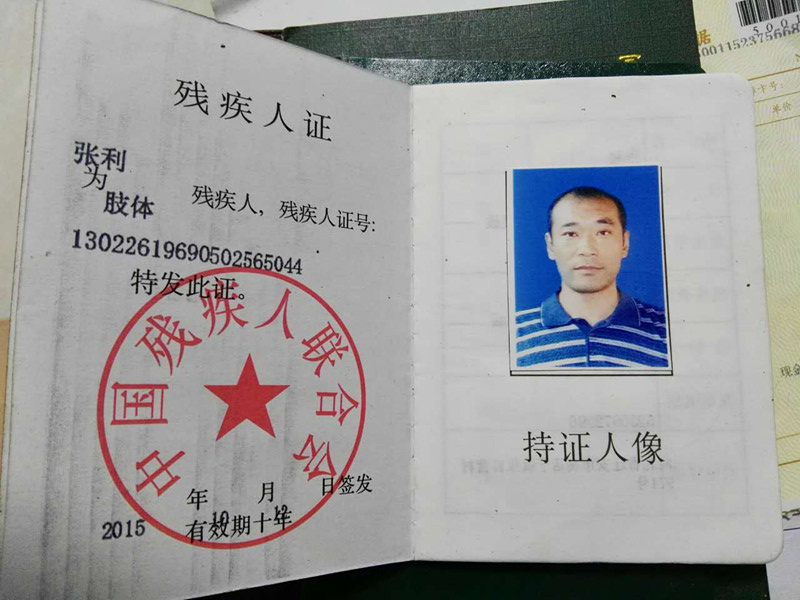 残疾人证
张利
为
肢体 残疾人，残疾人证号:
13022619690502565044
特发此证。
中国残疾人联合会
年 月 日签发
2015 10 12
有效期十年
持证人像
据
5001
001152375668
卡号:
单价
现金